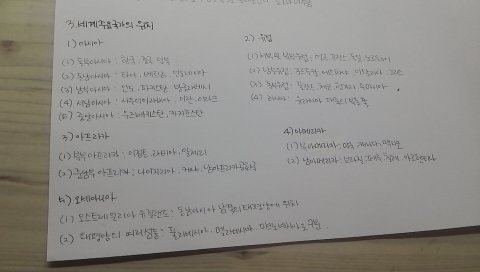 3. 세계 주요국가의 위치
1) 아시아
(1) 동북아시아 : 한국, 중국, 일본
(2) 동남아시아 : 타이, 베트남, 인도네시아
(3) 남부아시아 : 인도, 파키스탄, 방글라데시
(4) 서남아시아 : 사우디아라비아, 이란, 이라크
(5) 중앙아시아 : 우즈베키스탄, 카자흐스탄
2) 유럽
(1) 서부와 북부유럽 : 영국, 프랑스, 독일, 스웨덴
(2) 남부유럽 : 포르투갈, 에스파냐, 이탈리아, 그리스
(3) 동부유럽 : 폴란드, 체코, 헝가리, 루마니아
(4) 러시아 : 유라시아 대륙의 북동쪽
3) 아프리카
(1) 북부 아프리카 : 이집트, 리비아, 알제리
(2) 중남부 아프리카 : 나이지리아, 케냐, 남아프리카공화국
4) 아메리카
(1) 북아메리카 : 미국, 캐나다, 멕시코
(2) 남아메리카 : 브라질, 페루, 칠레, 아르헨티나
5) 오세아니아
(1) 오스트레일리아, 뉴질랜드 : 동남아시아 남쪽의 태평양에 위치
(2) 태평양의 여러 섬들 : 폴리네시아, 멜라네시아, 미크로네시아로 구분